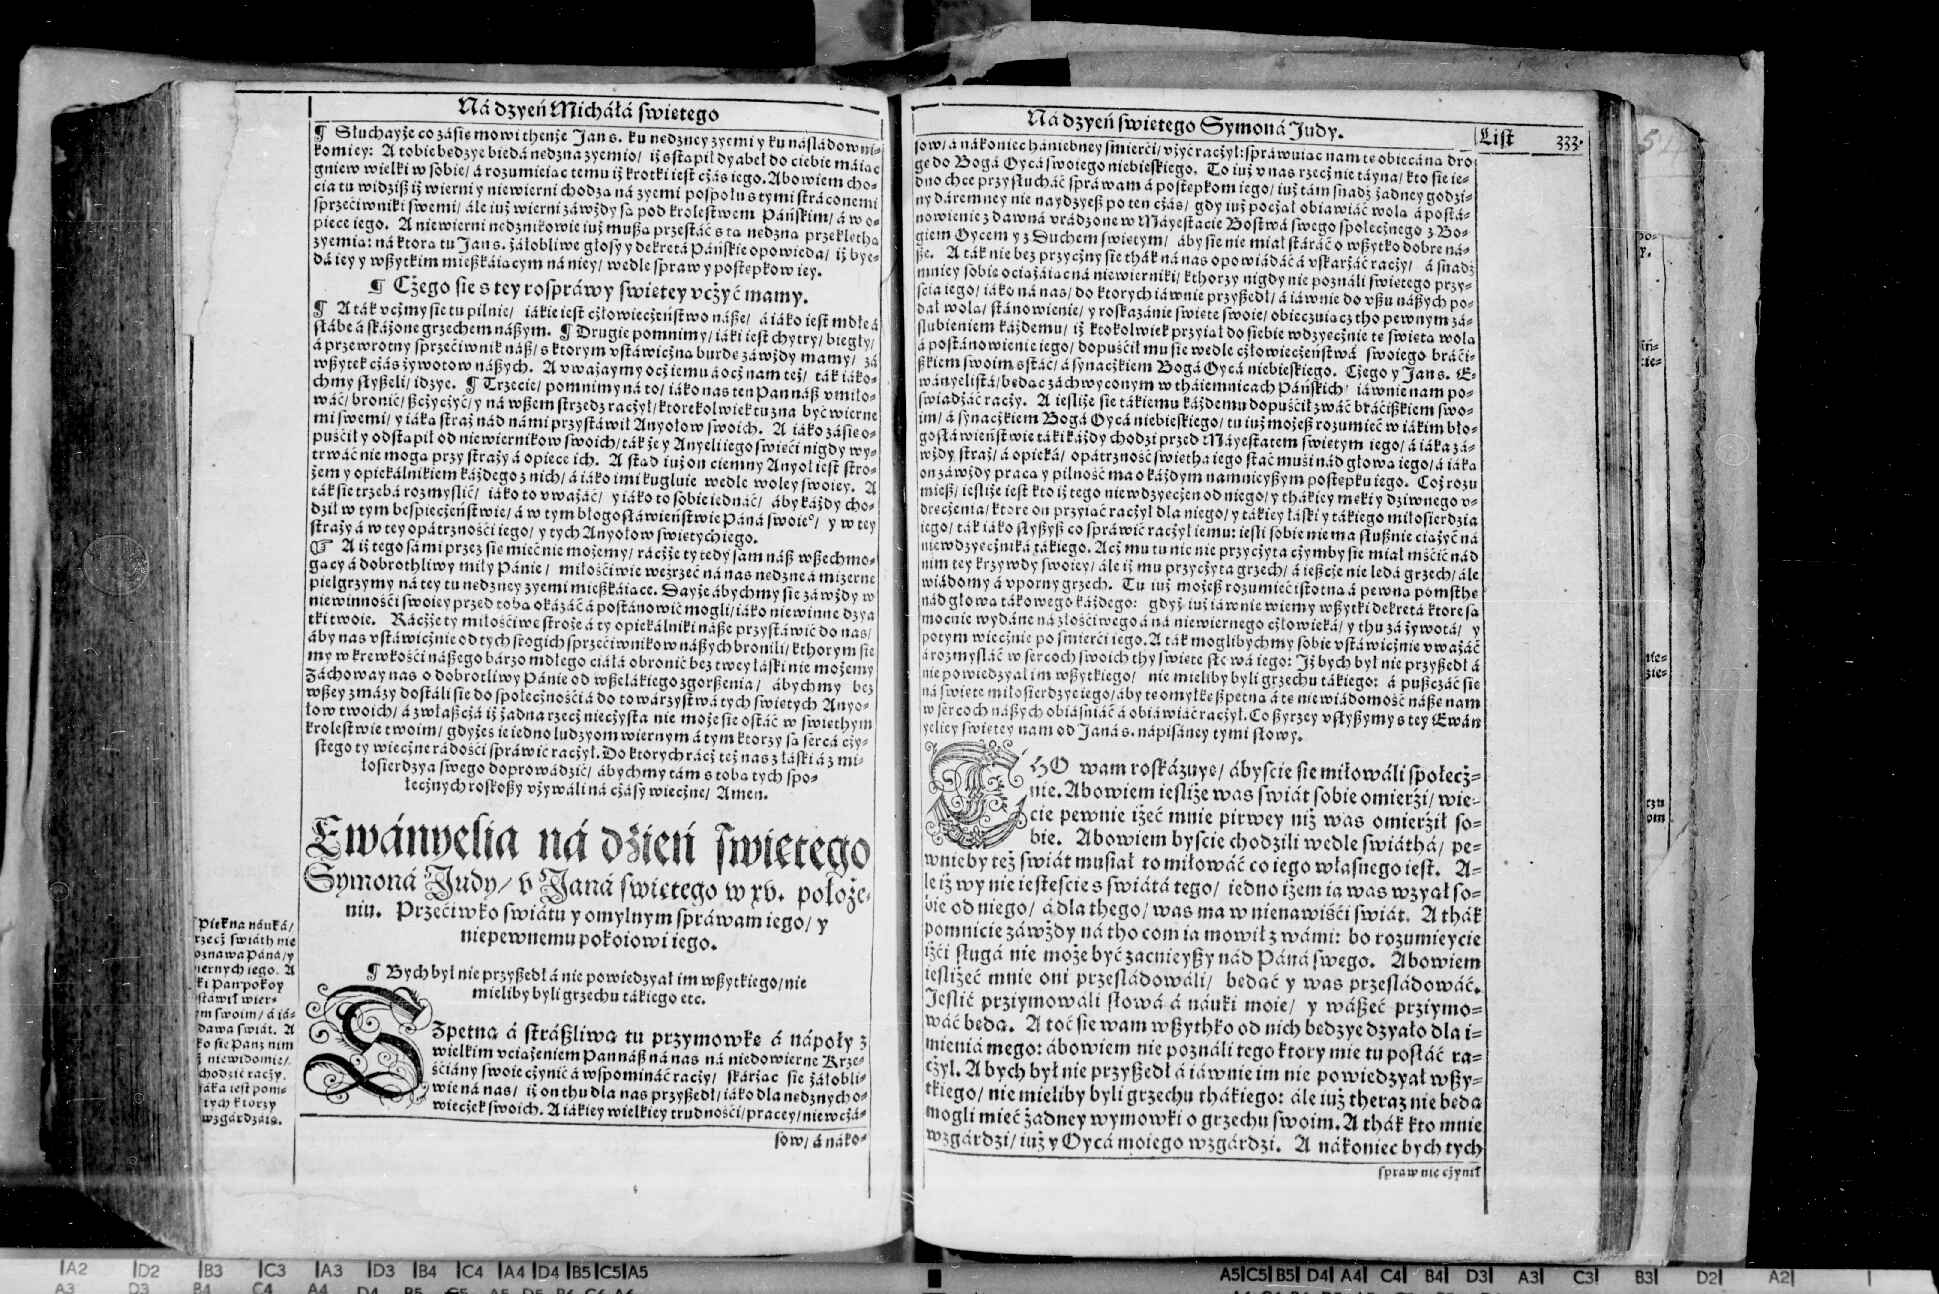 Ná dzyeń Micháłá swietego
¶ Słuchayże co zásie mowi thenże Jan s. ku nedzney zyemi y ku násládowni-
kom iey: A tobie bedzye biedá nedzna zyemio/ iż sstapił dyabeł do ciebie máiac
gniew wielki w sobie/ á rozumieiac temu iż krotki iest cżás iego. Abowiem cho-
cia tu widzisz iż wierni y niewierni chodza ná zyemi pospołu s tymi stráconemi
sprzećiwniki swemi/ ále iuż wierni záwżdy sa pod krolestwem Páńskim/ á w o-
piece iego. A niewierni nedznikowie iuż musza przestáć s ta nedzna przekletha
zyemia: ná ktora tu Jan s. żáłobliwe głosy y dekretá Páńskie opowieda/ iż bye-
dá iey y wszytkim mieszkáiacym ná niey/ wedle spraw y postepkow iey.
¶ Cżego sie s tey rospráwy swietey vcżyć mamy.
¶ A ták vcżmy sie tu pilnie/ iákie iest cżłowiecżeństwo násze/ á iáko iest mdłe á
słábe á skáżone grzechem nászym. ¶ Drugie pomnimy/ iáki iest chytry/ biegły/
á przewrotny sprzećiwnik nász/ s ktorym vstáwicżna burde záwżdy mamy/ zá
wszytek cżás żywotow nászych. A vważaymy ocż iemu á ocż nam też/ ták iáko-
chmy słyszeli/ idzye. ¶ Trzecie/ pomnimy ná to/ iáko nas ten Pan nász vmiło-
wáć/ bronić/ szcżyćyć/ y ná wszem strzedz racżył/ ktorekolwiek tu zna być wierne
mi swemi/ y iáka straż nád námi przystáwił Anyołow swoich. A iáko zásie o-
puśćił y odstapił od niewiernikow swoich/ ták że y Anyeli iego swieći nigdy wy-
trwáć nie moga przy straży á opiece ich. A stad iuż on ciemny Anyoł iest stro-
żem y opiekálnikiem káżdego z nich/ á iáko imi kugluie wedle woley swoiey. A
ták sie trzebá rozmyslić/ iáko to vważáć/ y iáko to sobie iednáć/ áby káżdy cho-
dził w tym bespiecżeństwie/ á w tym błogosłáwieństwie Páná swoieº/ y w tey
straży á w tey opátrznośći iego/ y tych Anyołow swietych iego.
☞ A iż tego sámi przez sie mieć nie możemy/ racżże ty tedy sam nász wszechmo-
gacy á dobrothliwy miły Pánie/ miłośćiwie weźrzeć ná nas nedzne á mizerne
pielgrzymy ná tey tu nedzney zyemi mieszkáiace. Dayże ábychmy sie záwżdy w
niewinnośći swoiey przed toba okázáć á postánowić mogli/ iáko niewinne dzya
tki twoie. Racżże ty miłośćiwe stroże á ty opiekálniki násze przystáwić do nas/
áby nas vstáwicżnie od tych srogich sprzećiwnikow nászych bronili/ kthorym sie
my w krewkośći nászego bárzo mdłego ciáłá obronić bez twey łáski nie możemy
Záchoway nas o dobrotliwy Pánie od wszelákiego zgorszenia/ ábychmy bez
wszey zmázy dostáli sie do społecżnośći á do towárzystwá tych swietych Anyo-
łow twoich/ á zwłaszcżá iż żadna rzecż niecżysta nie może sie ostáć w swiethym
krolestwie twoim/ gdyżes ie iedno ludzyom wiernym á tym ktorzy sa sercá cży-
stego ty wiecżne rádośći spráwić racżył. Do ktorych rácż też nas z łáski á z mi-
łosierdzya swego doprowádzić/ ábychmy tám s toba tych spo-
łecżnych roskoszy vżywáli ná cżásy wiecżne/ Amen.
Ewányelia ná dzień swietego
Symoná Judy/ v Janá swietego w xv. położe-
niu. Przećiwko swiátu y omylnym spráwam iego/ y
niepewnemu pokoiowi iego.
¶ Bych był nie przyszedł á nie powiedzyał im wszytkiego/ nie
mieliby byli grzechu tákiego etc.
Szpetna á strászliwa tu przymowke á nápoły z
wielkim vciażeniem Pan nász ná nas ná niedowierne Krze-
śćiány swoie cżynić á wspomináć racży/ skárżac sie żáłobli-
wie ná nas/ iż on thu dla nas przyszedł/ iáko dla nedznych o-
wiecżek swoich. A iákiey wielkiey trudnośći/ pracey/ niewcżá-
sow/ á náko-
Piekna náuká/
rzecż swiáth nie
oznawa Páná/ y
iernych iego. A
ki Pan pokoy
stáwił wier-
ym swoim/ á iá-
dawa swiát. A
ko sie Pan z nim
ż niewidomie/
chodzić racży.
iáka iest pom-
tych ktorzy
wzgárdzáia.
Ná dzyeń swietego Symoná Judy.
List 333.
sow/ á nákoniec hániebney smierći/ vżyć racżył: spráwuiac nam te obiecána dro
ge do Bogá Oycá swoiego niebieskiego. To iuż v nas rzecż nie táyna/ kto sie ie-
dno chce przysłucháć spráwam á postepkom iego/ iuż tám snadz żadney godzi-
ny dáremney nie naydzyesz po ten cżás/ gdy iuż pocżał obiáwiáć wola á postá-
nowienie z dawná vrádzone w Máyestacie Bostwá swego społecżnego z Bo-
giem Oycem y z Duchem swietym/ áby sie nie miał stáráć o wszytko dobre ná-
sze. A ták nie bez przycżyny sie thák ná nas opowiádáć á vskarżáć racży/ á snadz
mniey sobie ociażáiac ná niewierniki/ kthorzy nigdy nie poználi swietego przy-
ścia iego/ iáko ná nas/ do ktorych iáwnie przyszedł/ á iáwnie do vszu nászych po-
dał wola/ stánowienie/ y roskazánie swiete swoie/ obiecżuiacz tho pewnym zá-
slubieniem káżdemu/ iż ktokolwiek przyiał do siebie wdzyecżnie te swieta wola
á postánowienie iego/ dopuśćił mu sie wedle cżłowiecżeństwá swoiego bráći-
szkiem swoim sstáć/ á synacżkiem Bogá Oycá niebieskiego. Cżego y Jan s. E-
wányelistá/ bedac záchwyconym w tháiemnicach Páńskich/ iáwnie nam po-
swiadżáć racży. A iesliże sie tákiemu káżdemu dopuśćił zwáć bráćiszkiem swo-
im/ á synacżkiem Bogá Oycá niebieskiego/ tu iuż możesz rozumieć w iákim bło-
gosłáwieństwie táki káżdy chodzi przed Máyestatem swietym iego/ á iáka zá-
wżdy straż/ á opieká/ opátrzność swietha iego stać muśi nád głowa iego/ á iáka
on záwżdy praca y pilność ma o káżdym namnieyszym postepku iego. Coż rozu
miesz/ iesliże iest kto iż tego niewdzyecżen od niego/ y thákiey meki y dziwnego v-
drecżenia/ ktore on przyiáć racżył dla niego/ y tákiey łáski y tákiego miłosierdzia
iego/ ták iáko słyszysz co spráwić racżył iemu: iesli sobie nie ma słusznie ciażyć ná
niewdzyecżniká tákiego. Acż mu tu nic nie przycżyta cżymby sie miał mśćić nád
nim tey krzywdy swoiey/ ále iż mu przycżyta grzech/ á ieszcże nie ledá grzech/ ále
wiádomy á vporny grzech. Tu iuż możesz rozumieć istotna á pewna pomsthe
nád głowa tákowego káżdego: gdyż iuż iáwnie wiemy wszytki dekretá ktore sa
mocnie wydáne ná złośćiwego á ná niewiernego cżłowieká/ y thu zá żywotá/ y
potym wiecżnie po smierći iego. A ták moglibychmy sobie vstáwicżnie vważáć
á rozmysláć w sercoch swoich thy swiete słowá iego: Iż bych był nie przyszedł á
nie powiedzyał im wszytkiego/ nie mieliby byli grzechu tákiego: á puszcżáć sie
ná swiete miłosierdzye iego/ áby te omyłke szpetna á te niewiádomość násze nam
w sercoch nászych obiásniáć á obiáwiáć racżył. Co szyrzey vsłyszymy s tey Ewán
yeliey swietey nam od Janá s. nápisáney tymi słowy.
THO wam roskázuye/ ábyscie sie miłowáli społecż-
nie. Abowiem iesliże was swiát sobie omierźi/ wie-
cie pewnie iżeć mnie pirwey niż was omierźił so-
bie. Abowiem byscie chodzili wedle swiáthá/ pe-
wnieby też swiát musiał to miłowáć co iego własnego iest. A-
le iż wy nie iestescie s swiátá tego/ iedno iżem ia was wzyał so-
bie od niego/ á dla thego/ was ma w nienawiśći swiát. A thák
pomnicie záwżdy ná tho com ia mowił z wámi: bo rozumieycie
iżći sługá nie może być zacnieyszy nád Páná swego. Abowiem
iesliżeć mnie oni przesládowáli/ bedać y was przesládowáć.
Jeslić prziymowáli słowá á náuki moie/ y wászeć prziymo-
wáć beda. A toć sie wam wszythko od nich bedzye dzyało dla i-
mienia mego: ábowiem nie poználi tego ktory mie tu posłáć ra-
cżył. A bych był nie przyszedł á iáwnie im nie powiedzyał wszy-
tkiego/ nie mieliby byli grzechu thákiego: ále iuż theraz nie beda
mogli mieć żadney wymowki o grzechu swoim. A thák kto mnie
wzgárdzi/ iuż y Oycá moiego wzgárdzi. A nákoniec bych tych
spraw nie cżynił
A2 D2 B3 C3 A3 D3 B4 C4 A4 D4 B5 C5 A5
A5 C5 B5 D4 A4 C4 B4 D3 A3 C3 B3 D2 A2